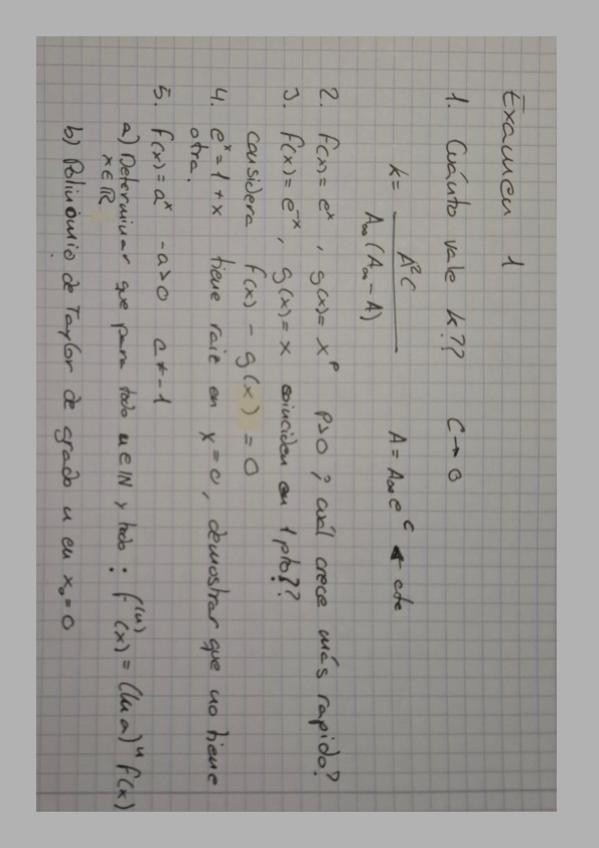 Examen 1
1. Cuánto vale k?? C→0
k = A²C / A∞(A∞ - A) A = A∞ e^C ← cte
2. f(x) = e^x , g(x) = x^p p>0 ? cuál crece más rapido?
3. f(x) = e^-x , g(x) = x coinciden en 1 pto??
considera f(x) - g(x) = 0
4. e^x = 1 + x tiene raiz en x = 0, demostrar que no tiene
otra.
5. f(x) = a^x - a>0 a≠-1
a) Determinar que para todo n ∈ IN y todo : f^(n)(x) = (ln a)^n f(x)
x ∈ IR
b) Polinómio de Taylor de grado n en x₀ = 0